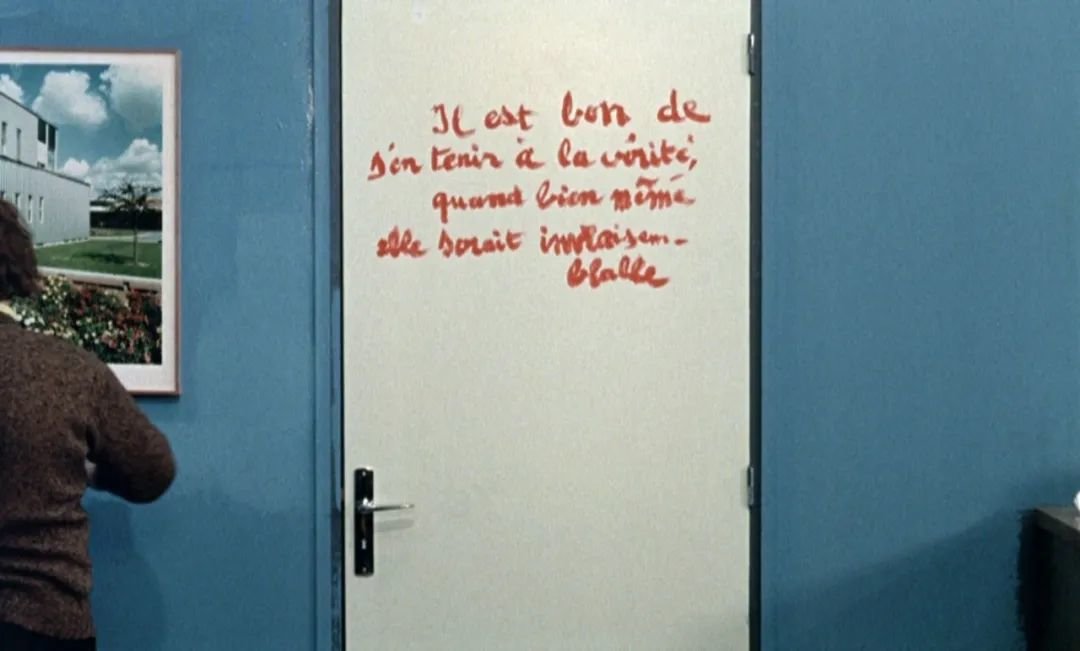 Il est bon de
s'en tenir à la vérité,
quand bien même
elle serait invraisem-
blable